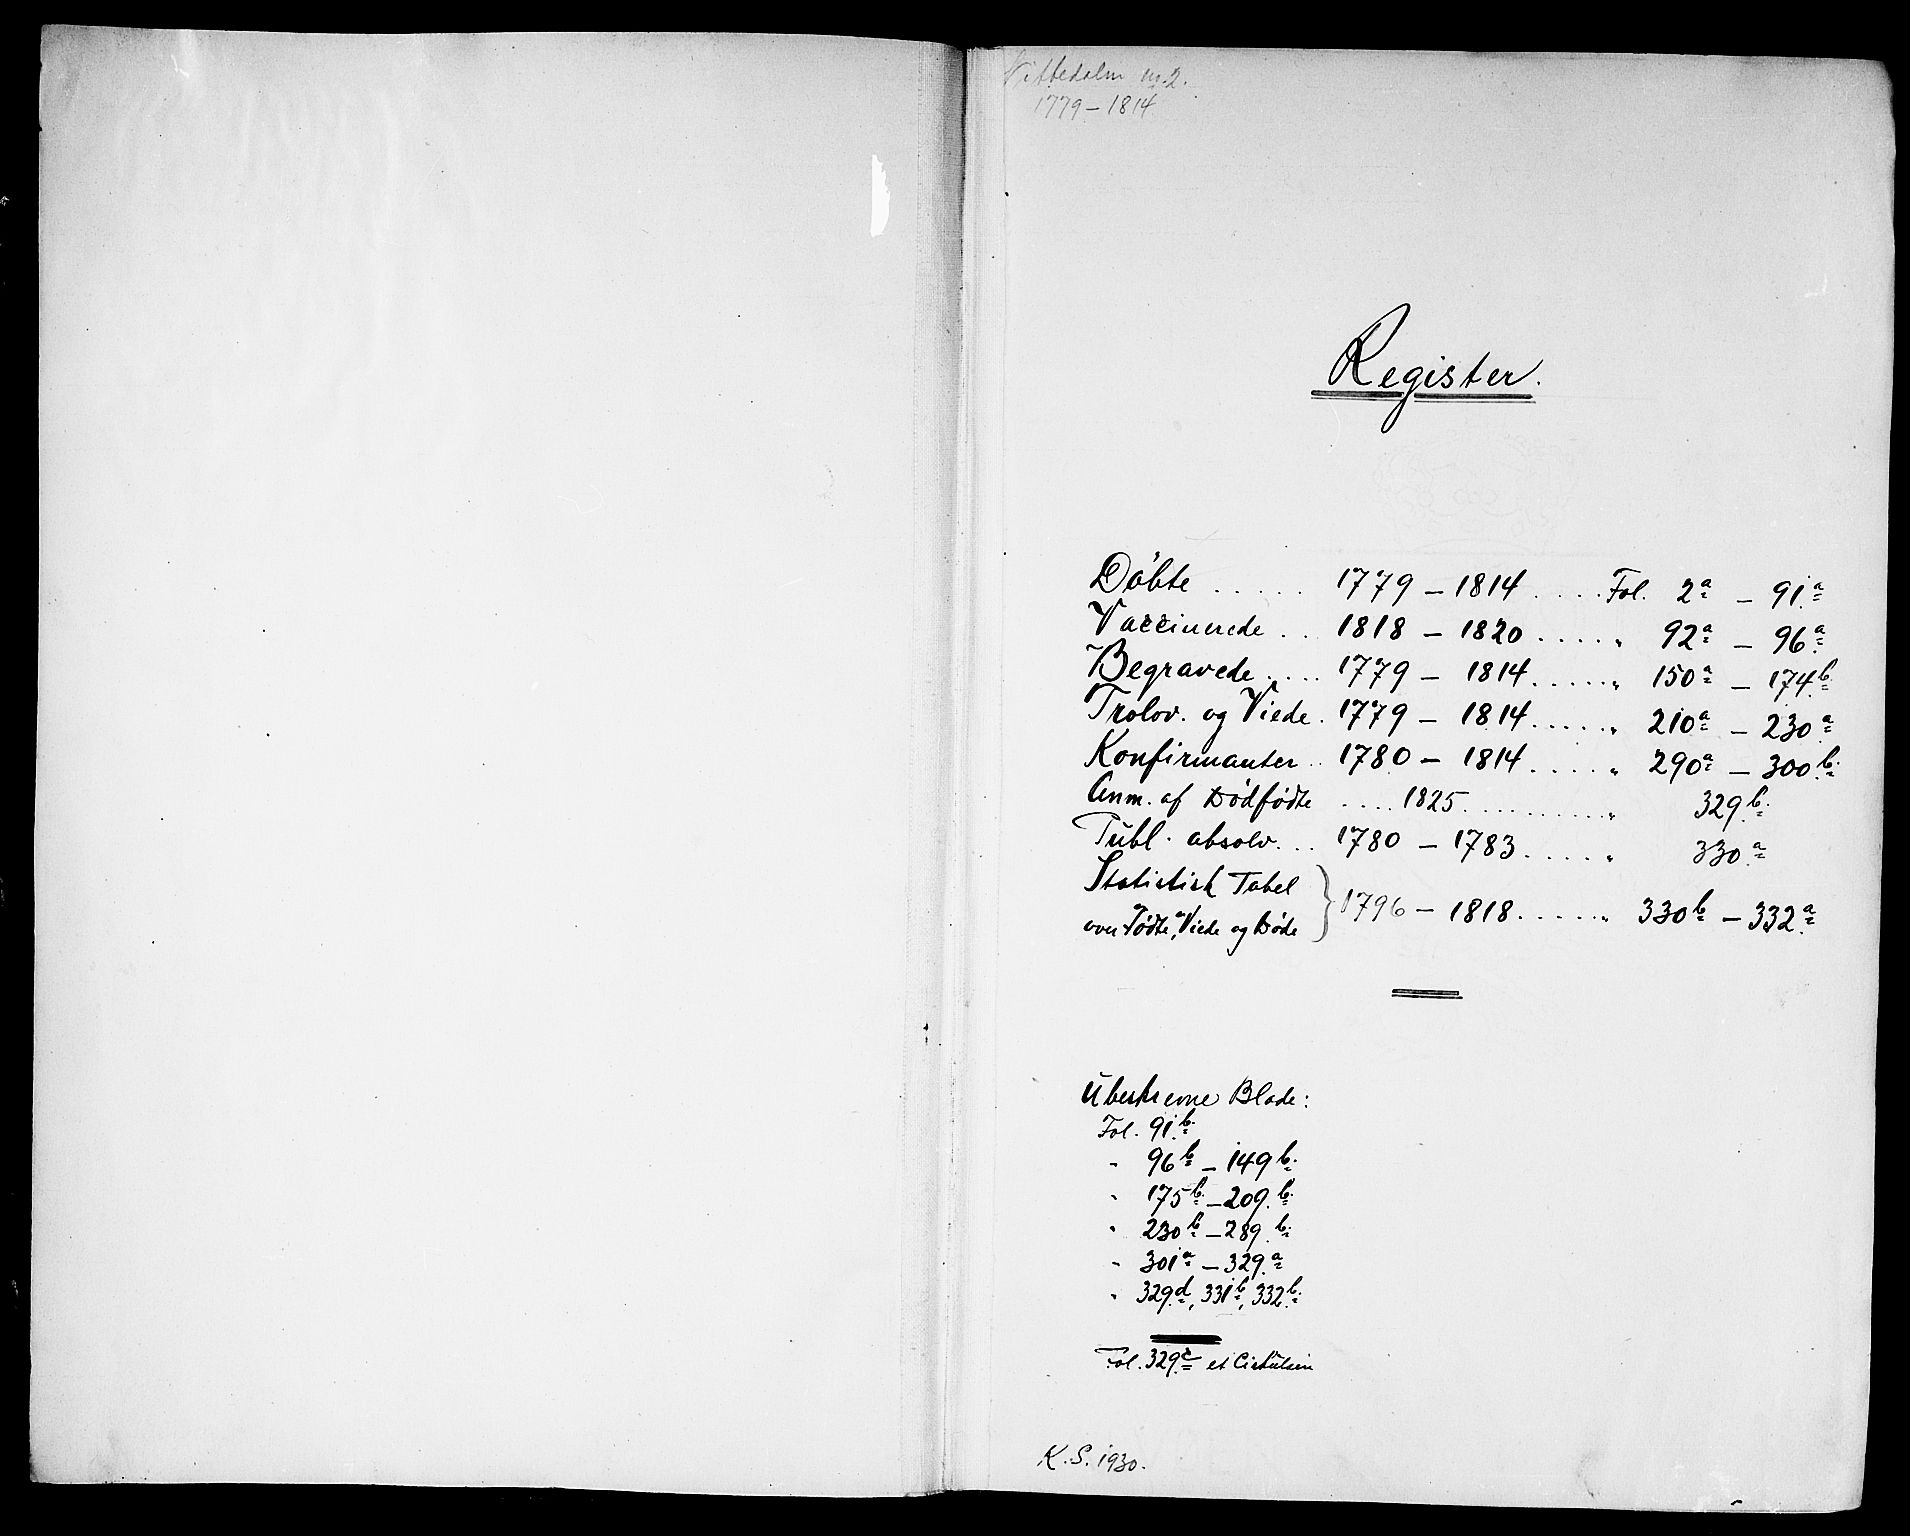 Nittedalen nr. 2.
1779 – 1814
Register.
Döbte ...... 1779 – 1814 ..... Fol. 2a – 91a
Vaccinerede ... 1818 – 1820 ..... " 92a – 96a
Begravede .... 1779 – 1814 ..... " 150a – 174b
Trolov. og Viede . 1779 – 1814 ..... " 210a – 230a
Konfirmanter .. 1780 – 1814 ..... " 290a – 300b
Anm. af Dødfødte .... 1825 .......... " 329b
Publ. absolv. .. 1780 – 1783 ..... " 330a
Statistisk Tabel
over Fødte, Viede og Døde } 1796 – 1818 ..... " 330b – 332a
Ubeskrevne Blade:
Fol. 91b
" 96b – 149b
" 175b – 209b
" 230b – 289b
" 301a – 329a
" 329d, 331b, 332b
Fol. 329c et Cirkulære
K. S. 1930.